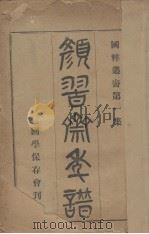 國粹叢書第一集
顏習齋年譜
國學保存會刊